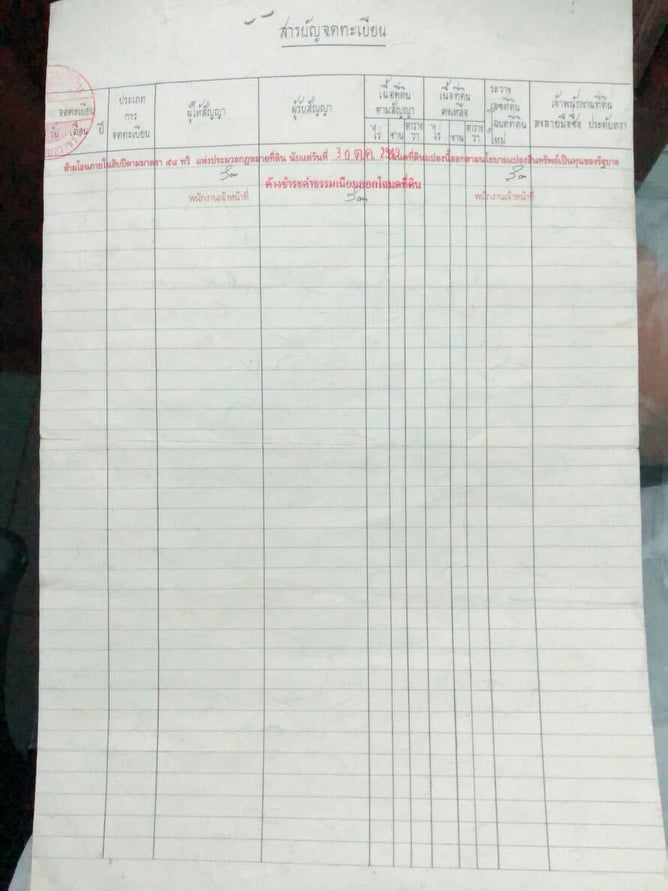 สารบัญจดทะเบียน
จดทะเบียน
วัน เดือน ปี
ประเภท
การ
จดทะเบียน
ผู้ให้สัญญา
ผู้รับสัญญา
เนื้อที่ดิน
ตามสัญญา
ไร่ งาน ตาราง
วา
เนื้อที่ดิน
คงเหลือ
ไร่ งาน ตาราง
วา
ระวาง
เลขที่ดิน
โฉนดที่ดิน
ใหม่
เจ้าพนักงานที่ดิน
ลงลายมือชื่อ ประทับตรา
ห้ามโอนภายในสิบปีตามมาตรา ๕๘ ทวิ แห่งประมวลกฎหมายที่ดิน นับแต่วันที่ 30 ต.ค.
ที่ดินแปลงนี้ออกตามนโยบายแปลงสินทรัพย์เป็นทุนของรัฐบาล
ค้างชำระค่าธรรมเนียมออกโฉนดที่ดิน
พนักงานเจ้าหน้าที่
พนักงานเจ้าหน้าที่